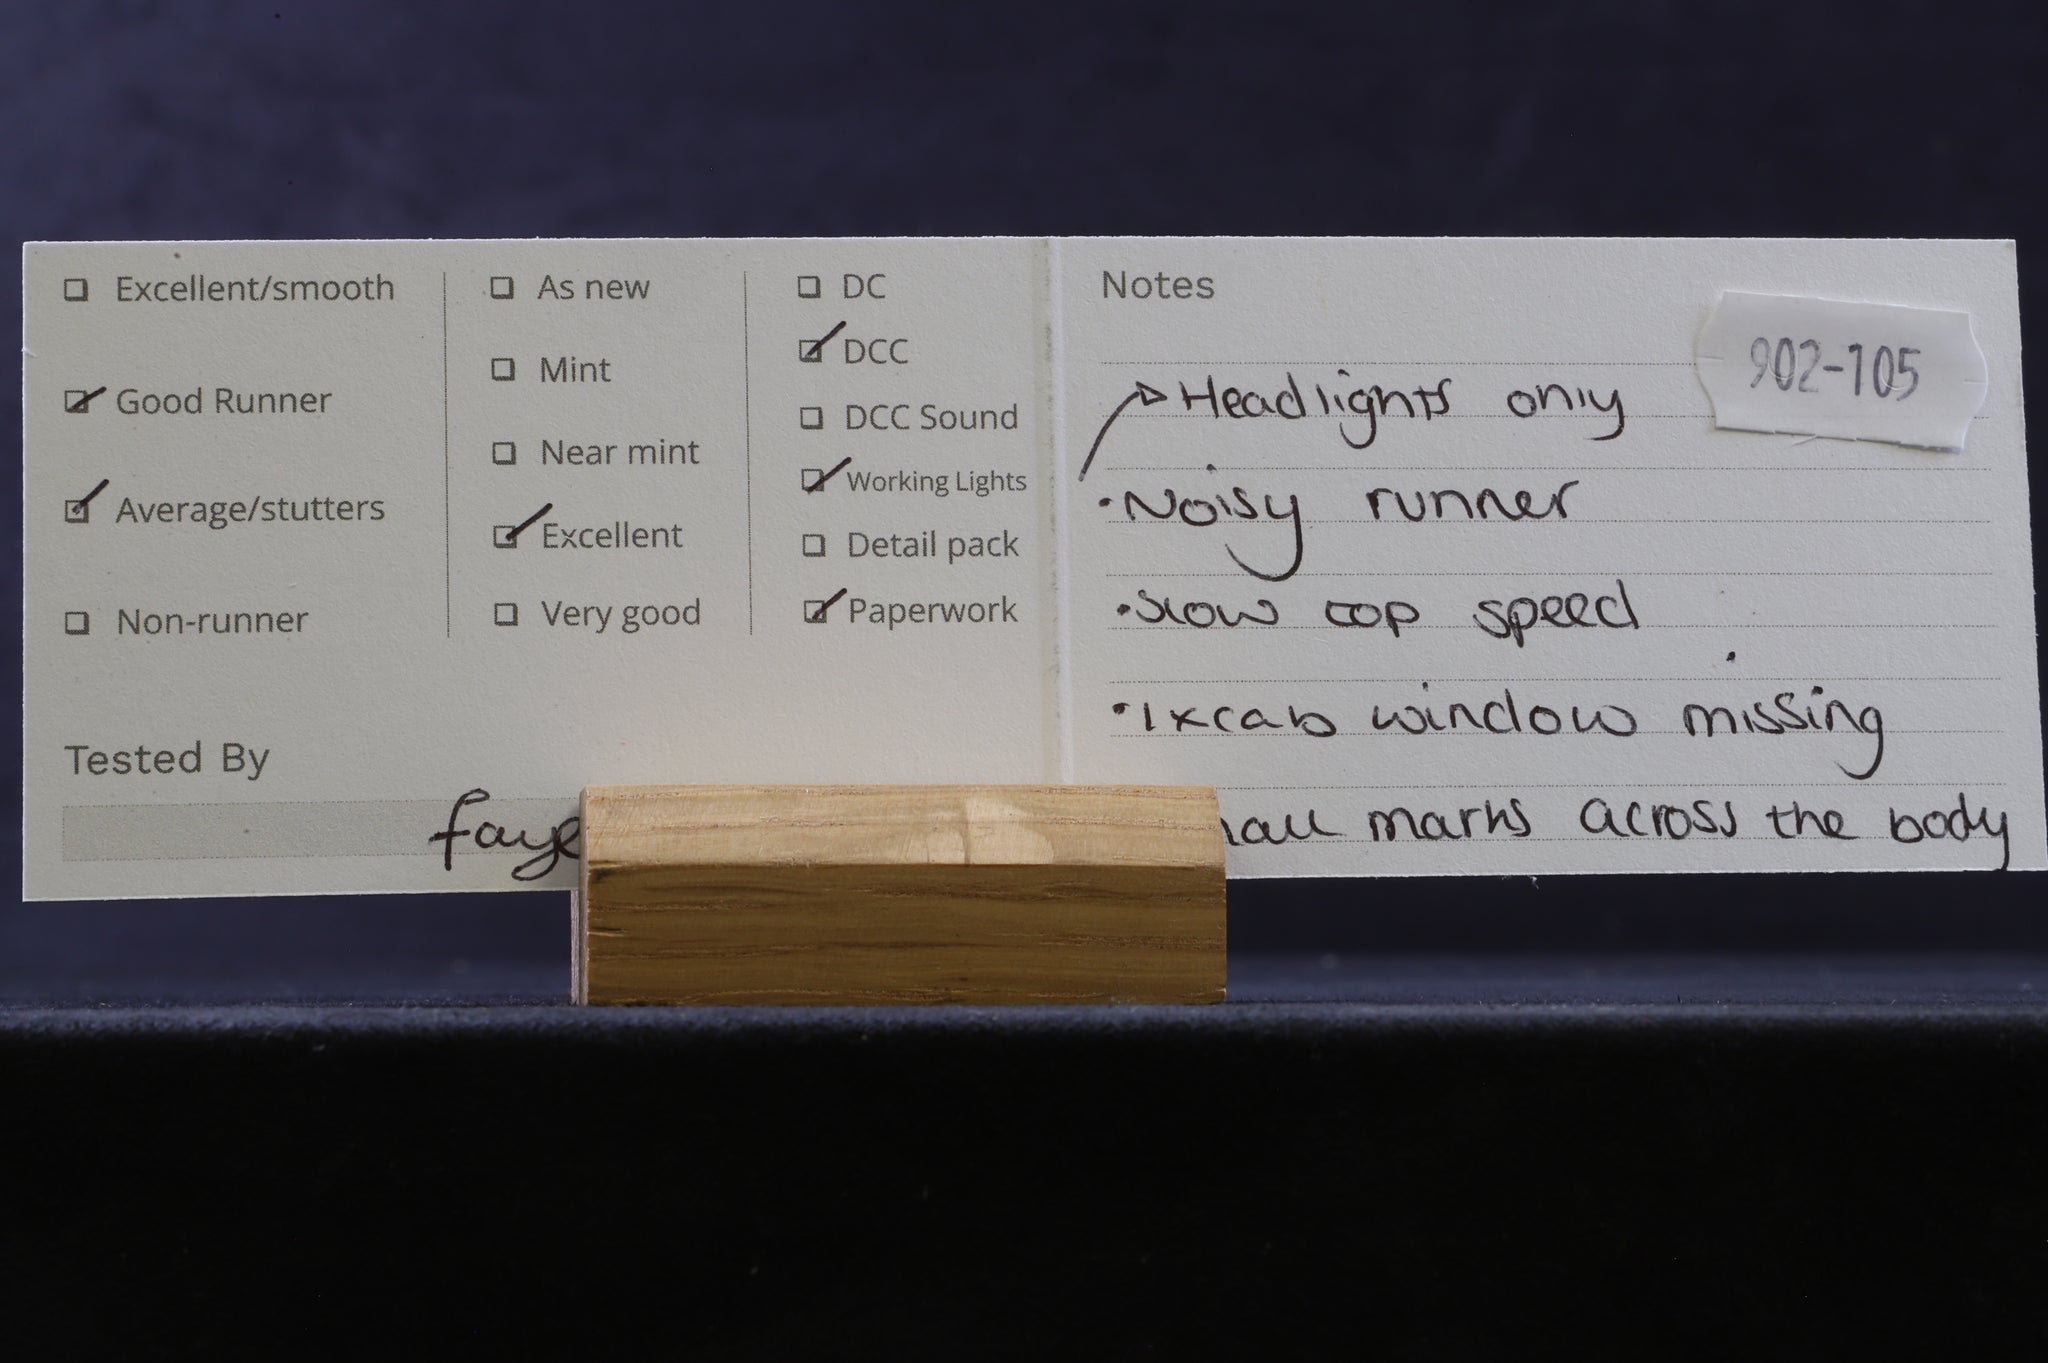 Excellent/smooth
Good Runner
Average/stutters
Non-runner
As new
Mint
Near mint
Excellent
Very good
DC
DCC
DCC Sound
Working Lights
Detail pack
Paperwork
Tested By
faye
Notes
902-105
Headlights only
•Noisy runner
•Slow top speed
•1xcab window missing
marks across the body